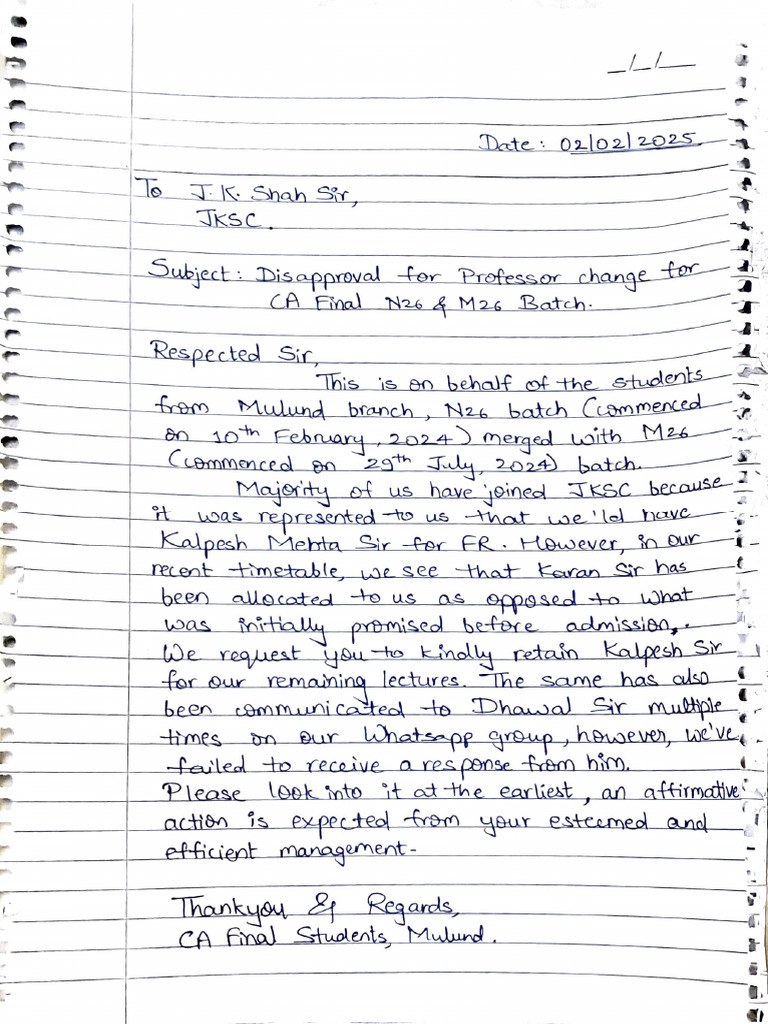 _/_/__
Date: 02/02/2025.
To J.K. Shah Sir,
JKSC.
Subject: Disapproval for Professor change for
CA Final N26 & M26 Batch.
Respected Sir,
This is on behalf of the students
from Mulund branch, N26 batch (commenced
on 10th February, 2024) merged with M26
(commenced on 29th July, 2024) batch.
Majority of us have joined JKSC because
it was represented to us that we'ld have
Kalpesh Mehta Sir for FR. However, in our
recent timetable, we see that Karan Sir has
been allocated to us as opposed to what
was initially promised before admission,.
We request you to kindly retain Kalpesh Sir
for our remaining lectures. The same has also
been communicated to Dhawal Sir multiple
times on our Whatsapp group, however, we've
failed to receive a response from him.
Please look into it at the earliest, an affirmative
action is expected from your esteemed and
efficient management-
Thankyou & Regards,
CA Final Students, Mulund.